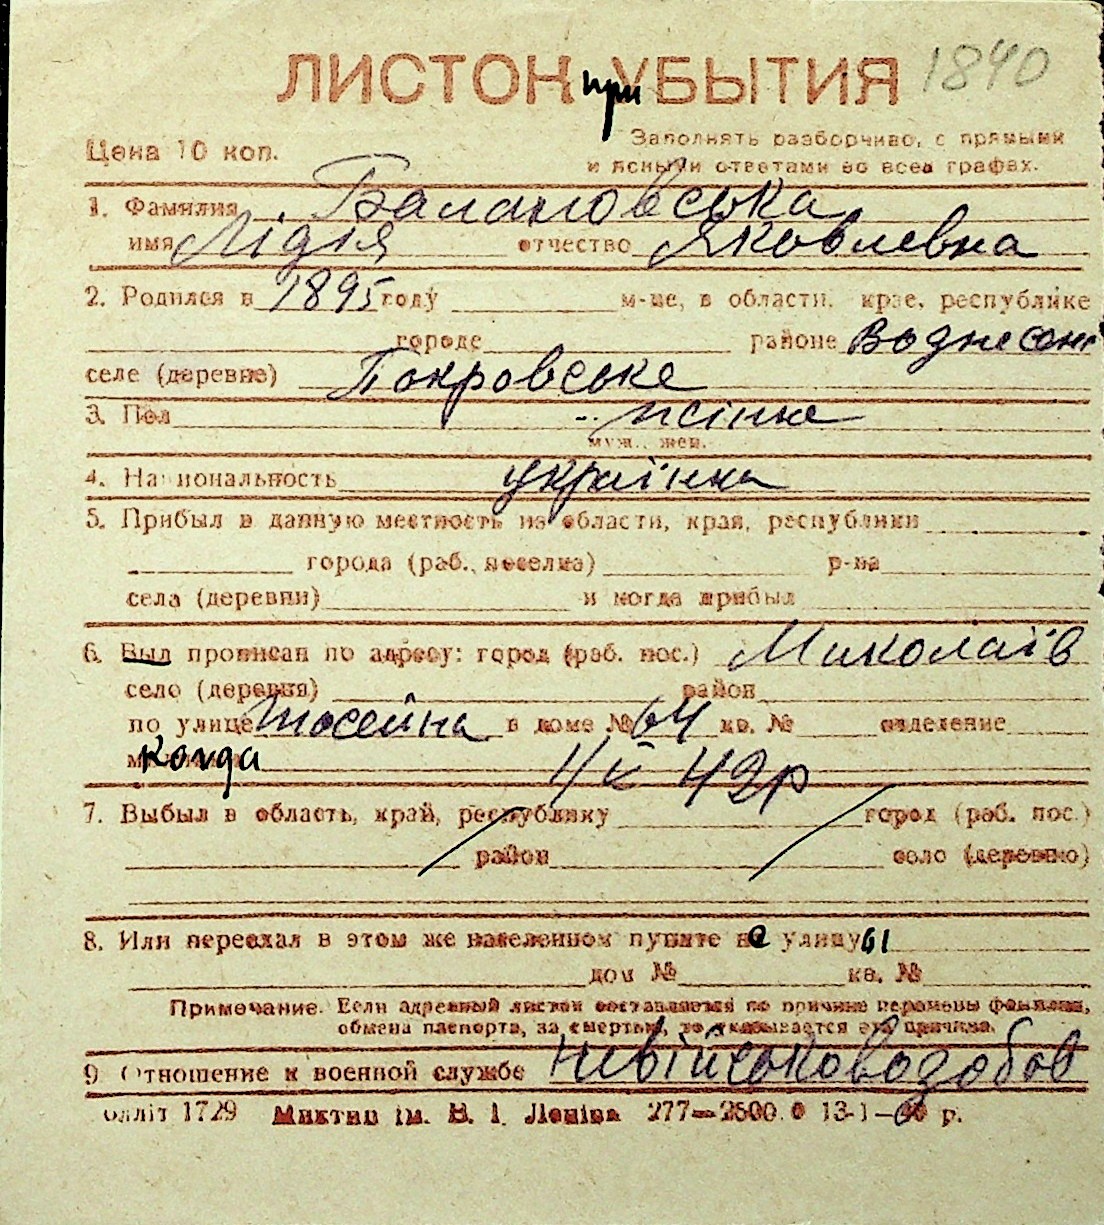 ЛИСТОК при УБЫТИЯ 1840
Цена 10 коп.
Заполнять разборчиво, с прямыми
и ясными ответами во всех графах.
1. Фамилия Балановська
имя Лідія отчество Яковлевна
2. Родился в 1895 году м-це, в области, крае, республике
городе районе Воднесенс
селе (деревне) Покровське
3. Пол жінка
муж., жен.
4. Национальность українка
5. Прибыл в данную местность из области, края, республики
города (раб. поселка) р-на
села (деревни) и когда прибыл
6. Был прописан по адресу: город (раб. пос.) Миколаїв
село (деревня) район
по улице Шосейна в доме № 64 кв. № отделение
когда 42р
7. Выбыл в область, край, республику город (раб. пос.)
район село (деревню)
8. Или переехал в этом же населенном пункте не улицу 61
дом № кв. №
Примечание. Если адресный листок составляется по причине перемены фамилии,
обмена паспорта, за смертью, то указывается эта причина.
9. Отношение к военной службе невійськовозобов
олліт 1729 Миктип ім. В. І. Леніна 277—2500. 13-1- р.